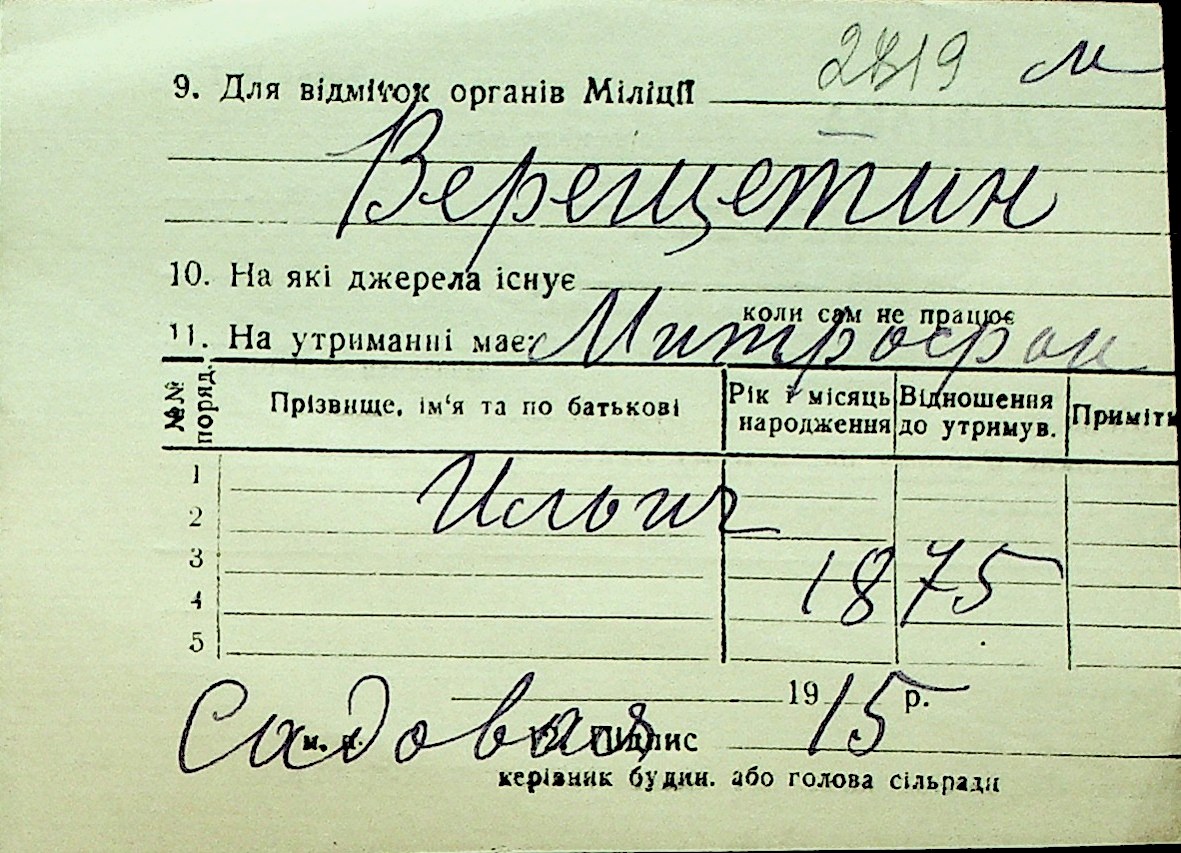 2819 м
9. Для відміток органів Міліції
Верещетин
10. На які джерела існує
коли сам не працює
11. На утриманні має:
Митрофан
№№ поряд. Прізвище, ім'я та по батькові Рік і місяць народження Відношення до утримув. Примітк
1
Ильич
2
3
1875
4
5
19 р.
Садовая 15
м. п. Підпис
керівник будин. або голова сільради